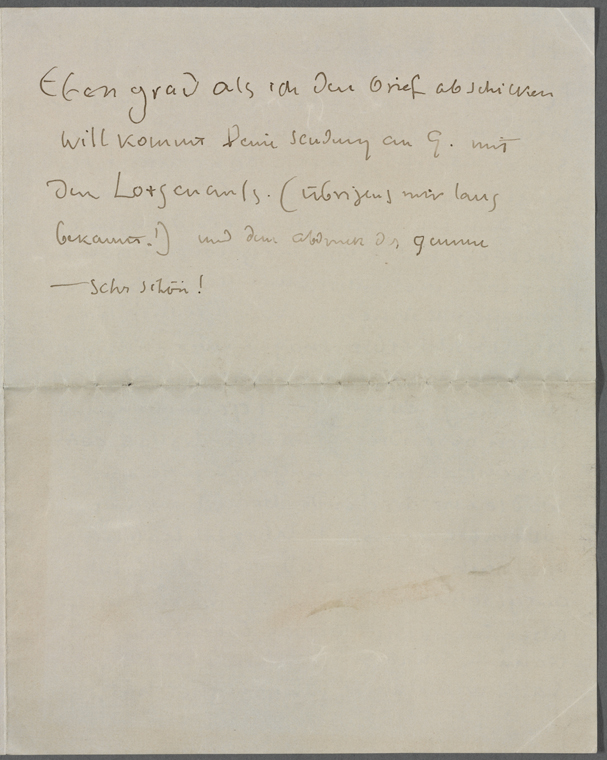 Eben grad als ich den brief abschicken
will kommt deine sendung an G. mit
den (übrigens mir lang
bekannt!) und dem abdruck der gemme
— sehr schön!